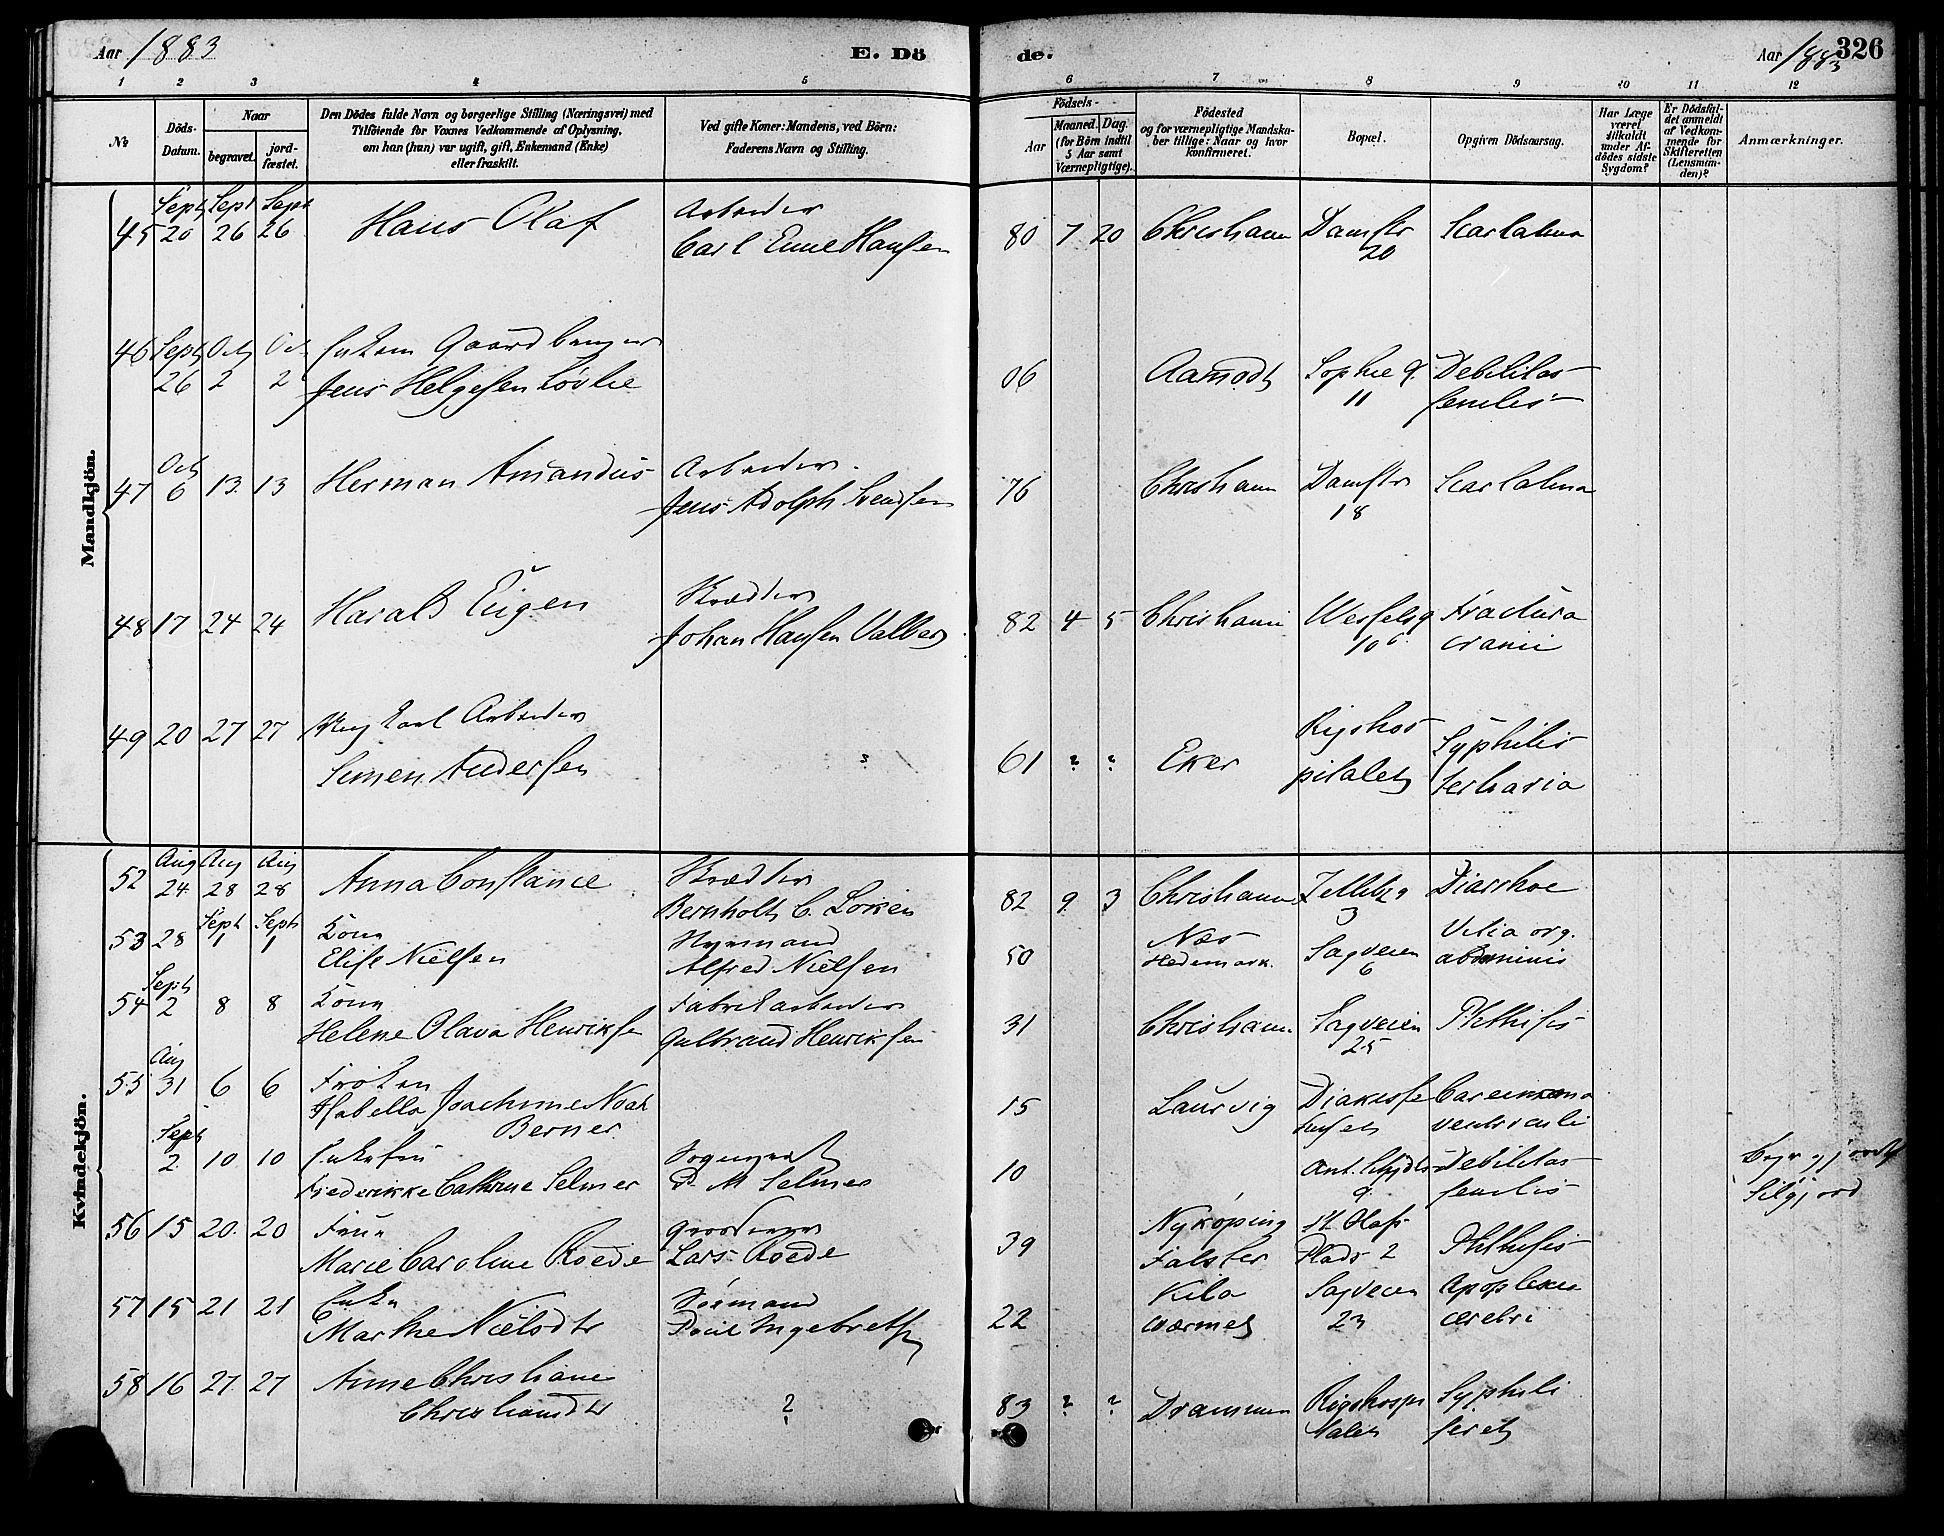 Aar 1883
E. Dö
de.
Aar 1883
326
1 2 3 4 5 6 7 8 9 10 11 12
No
Döds-Datum.
Naar
begravet.
jord-fæstet.
Den Dödes fulde Navn og borgerlige Stilling (Næringsvei) med
Tilföiende for Voxnes Vedkommende af Oplysning,
om han (hun) var ugift, gift, Enkemand (Enke)
eller fraskilt.
Ved gifte Koner: Mandens, ved Börn:
Faderens Navn og Stilling.
Födsels-
Aar
Maaned. Dag.
(for Börn indtil
5 Aar samt
Værnepligtige).
Födested
og for værnepligtige Mandska-
ber tillige: Naar og hvor
konfirmeret.
Bopæl.
Opgiven Dödsaarsag.
Har Læge
været
tilkaldt
under Af-
dödes sidste
Sygdom?
Er Dödsfal-
det anmeldt
af Vedkom-
mende for
Skifteretten
(Lensman-
den)?
Anmærkninger.
Mandkjön.
Sept Sept Sept Arbeider
45 20 26 26 Hans Olaf Carl Emil Hansen 80 7 20 Christiania Damstr 20 Scarlatina
46 Sept Oct Oct Enkem Gaardbruger
26 2 2 Jens Helgesen Løvlie 06 Aamodt Sophie g. 11 Debilitas senilis
Oct Arbeider
47 6 13 13 Herman Amandus Jens Adolph Svendsen 76 Christiania Damstr 18 Scarlatina
Skrædder
48 17 24 24 Harald Eugen Johan Hansen Valberg 82 4 5 Christiania Wesselsg 10 Fractura cranii
49 20 27 27 Ung Karl Arbeider
Simen Andersen ? 61 ? ? Eker Rigshospitalet Syphilis tertiaria
Kvindekjön.
Aug Aug Aug Skrædder
52 24 28 28 Anna Constance Bernholt C. Løken 82 9 3 Christiania 3 Diarrhoe
Sept Sept
53 28 1 1 Kone Elise Nielsen Alfred Nielsen 50 Næs Hedemark. Sagveien 6 Vitia org. abdominis
Sept
54 2 8 8 Kone Fabrikarbeider
Helene Olava Henriksen Gulbrand Henriksen 31 Christiania Sagveien 25 Phthisis
Aug
55 31 6 6 Frøken
Isabella Joachime Noah Berner 15 Laurvig Diakonissehuset Carcinoma ventriculi
Sept
2 10 10 Enkefru Sogneprest
Frederikke Cathrine Selmer P. M Selmer 10 9 Debilitas senilis Siljord
56 15 20 20 Frue Grosserer
Marie Caroline Roede Lars Roede 39 Nykøping Falster St. Olafs Plads 2 Phthisis
57 15 21 21 Enke Sømand
Marthe Nielsdtr Poul Ingebretsen 22 Kila Værmel Sagveien 23 Apoplexia cerebri
58 16 27 27 Anne Christiane
Christiansdtr ? 83 ? ? Drammen Rigshospitalet Syphili